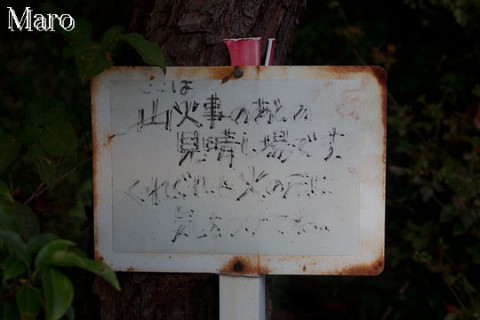 Maro
ここは
山火事のあとの
見晴し場です
くれぐれも火の元に
気をつけて